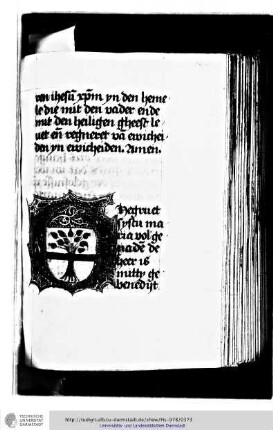 ren ihesu xpm yn den heme
le die mit den vader ende
mit den heiligen gheest le
uet en regneret va ewichei
den yn ewicheiden. Amen.
Hegruet
systu ma
ria vol ge
naade de
heer is
mitty ge
benedijt
TECHNISCHE
UNIVERSITÄT
DARMSTADT
Universitäts- und Landesbibliothek Darmstadt